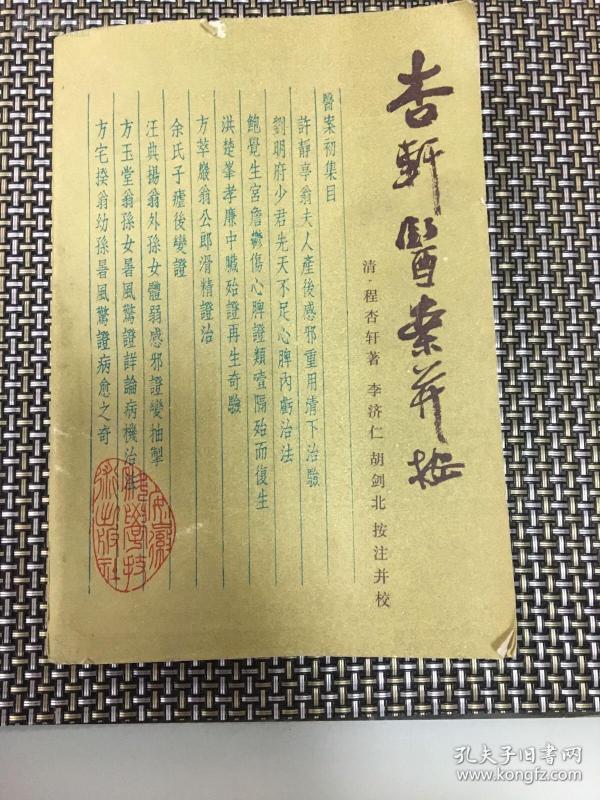 杏軒醫案并按
清·程杏轩著 李济仁 胡剑北 按注并校
醫案初集目
許靜亭翁夫人產後感邪重用清下治驗
劉明府少君先天不足心脾內虧治法
鮑覺生宮詹鬱傷心脾證類噎隔殆而復生
洪楚峯孝廉中臟殆證再生奇驗
方萃巖翁公郎滑精證治
余氏子瘧後變證
汪典揚翁外孫女體弱感邪證變抽掣
方玉堂翁孫女暑風驚證詳論病機治法
方宅揆翁幼孫暑風驚證病愈之奇
安徽
科學技
術出版社
孔夫子旧书网
www.kongfz.com